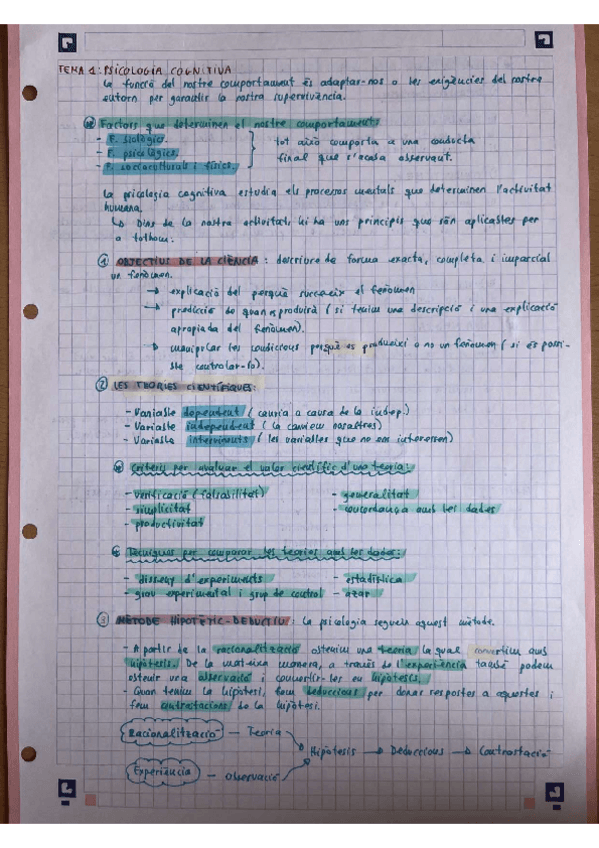 TEMA 1: PSICOLOGIA COGNITIVA
La funció del nostre comportament és adaptar-nos a les exigències del nostre
entorn per garantir la nostra supervivència.
Factors que determinen el nostre comportament:
- F. biològic.
- F. psicològics.
- F. socioculturals i físics.
tot això comporta a una conducta
final que s'acaba observant.
La psicologia cognitiva estudia els processos mentals que determinen l'activitat
humana.
↳ Dins de la nostra activitat, hi ha uns principis que són aplicables per
a tothom.
① OBJECTIUS DE LA CIÈNCIA: descriure de forma exacta, completa i imparcial
un fenòmen.
→ explicació del perquè succeeix el fenòmen
→ predicció de quan es produirà (si tenim una descripció i una explicació
apropiada del fenòmen).
→ manipular les condicions perquè es produeixi o no un fenòmen (si és possi-
ble controlar-lo).
② LES TEORIES CIENTÍFIQUES:
- Variable dependent (canvia a causa de la indep.)
- Variable independent (la canviem nosaltres)
- Variable intervinents (les variables que no ens interessen)
Criteris per avaluar el valor científic d'una teoria:
- verificació (falsabilitat)
- simplicitat
- productivitat
- generalitat
- concordança amb les dades
Tècniques per comparar les teories amb les dades:
- disseny d'experiments
- grau experimental i grup de control
- estadística
- azar
③ MÈTODE HIPOTÈTIC-DEDUCTIU: la psicologia segueix aquest mètode.
- A partir de la racionalització obtenim una teoria la qual convertim amb
hipòtesis. De la mateixa manera, a través de l'experiència també podem
obtenir una observació i convertir-les en hipòtesis.
- Quan tenim la hipòtesi, fem deduccions per donar respostes a aquestes i
fem contrastacions de la hipòtesi.
Racionalització — Teoria
Hipòtesis → Deduccions → Contrastació
Experiència — Observació